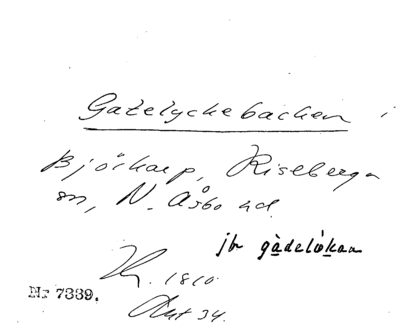 Gatelyckebacken i
Björkarp, Riseberga
sn, N. Åsbo hd.
jfr gàdelòkan
1810
Nr 7339.
Akt 34.